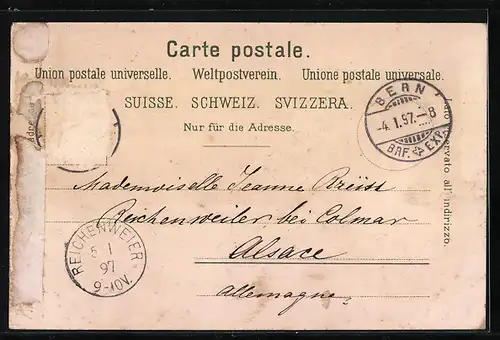 Carte postale.
Union postale universelle. Weltpostverein. Unione postale universale.
SUISSE. SCHWEIZ. SVIZZERA.
Nur für die Adresse.
BERN
-4. 1. 97.-8
BRF. EXP.
all' indirizzo.
Mademoiselle Jeanne Brüst
Reichenweiler bei Colmar
Alsace
Allemagne
REICHENWEIER
5 1
97
9-10V.